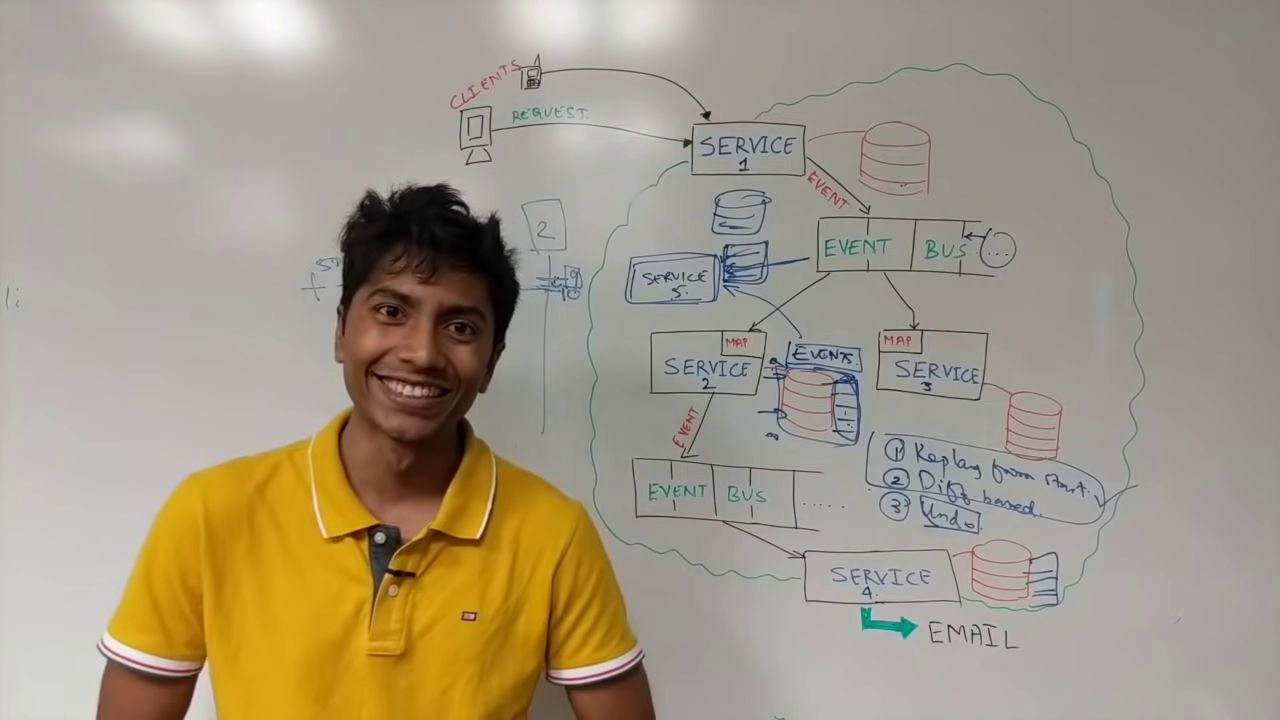 CLIENTS
REQUEST
SERVICE
1
EVENT
2
EVENT BUS
...
SERVICE
5.
MAP
SERVICE
2
EVENTS
MAP
SERVICE
3
EVENT
① Replay from start.
② Diff based.
③ Undo.
EVENT BUS
.....
SERVICE
4.
EMAIL